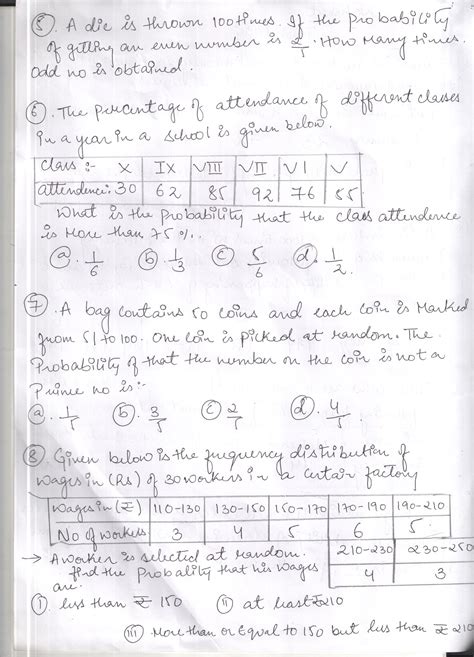 ⑤. A die is thrown 100 times. If the probability
of getting an even number is 2/5. How Many times
odd no is obtained.
⑥. The percentage of attendance of different classes
in a year in a school is given below.
Class :- X IX VIII VII VI V
attendence: 30 62 85 92 76 55
What is the probability that the class attendence
is More than 75 %.
ⓐ. 1/6 ⓑ. 1/3 ⓒ 5/6 ⓓ. 1/2.
⑦. A bag contains 50 coins and each coin is Marked
from 51 to 100. One coin is picked at random. The
Probability of that the number on the coin is not a
Prime no is:-
ⓐ. 1/5 ⓑ. 3/5 ⓒ 2/5 ⓓ. 4/5
⑧. Given below is the frequency distribution of
wages in (Rs) of 30 workers in a certain factory
Wages in (₹) 110-130 130-150 150-170 170-190 190-210
No of workers 3 4 5 6 5
210-230 230-250
4 3
→ A worker is selected at random.
find the Probality that his wages
are.
ⓘ less than ₹ 150 ⓘⓘ at least ₹210
iii More than or Equal to 150 but less than ₹ 210